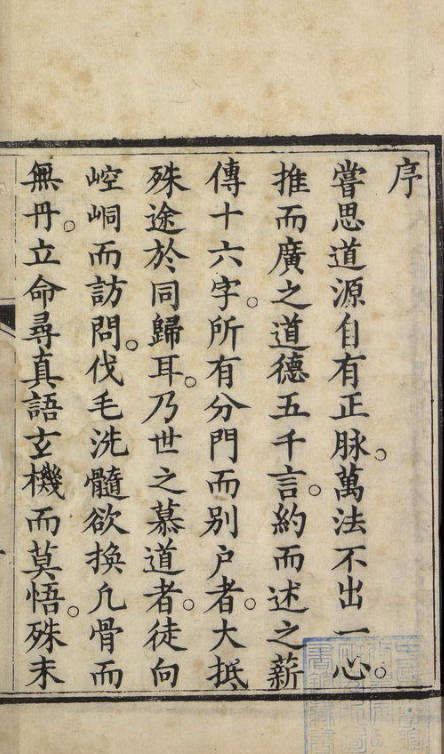 序
嘗思道源自有正脉。萬法不出一心。
推而廣之道德五千言。約而述之薪
傳十六字。所有分門而别户者。大抵
殊途於同歸耳。乃世之慕道者。徒向
崆峒而訪問。伐毛洗髓欲换凢骨而
無丹。立命尋真語玄機而莫悟。殊未